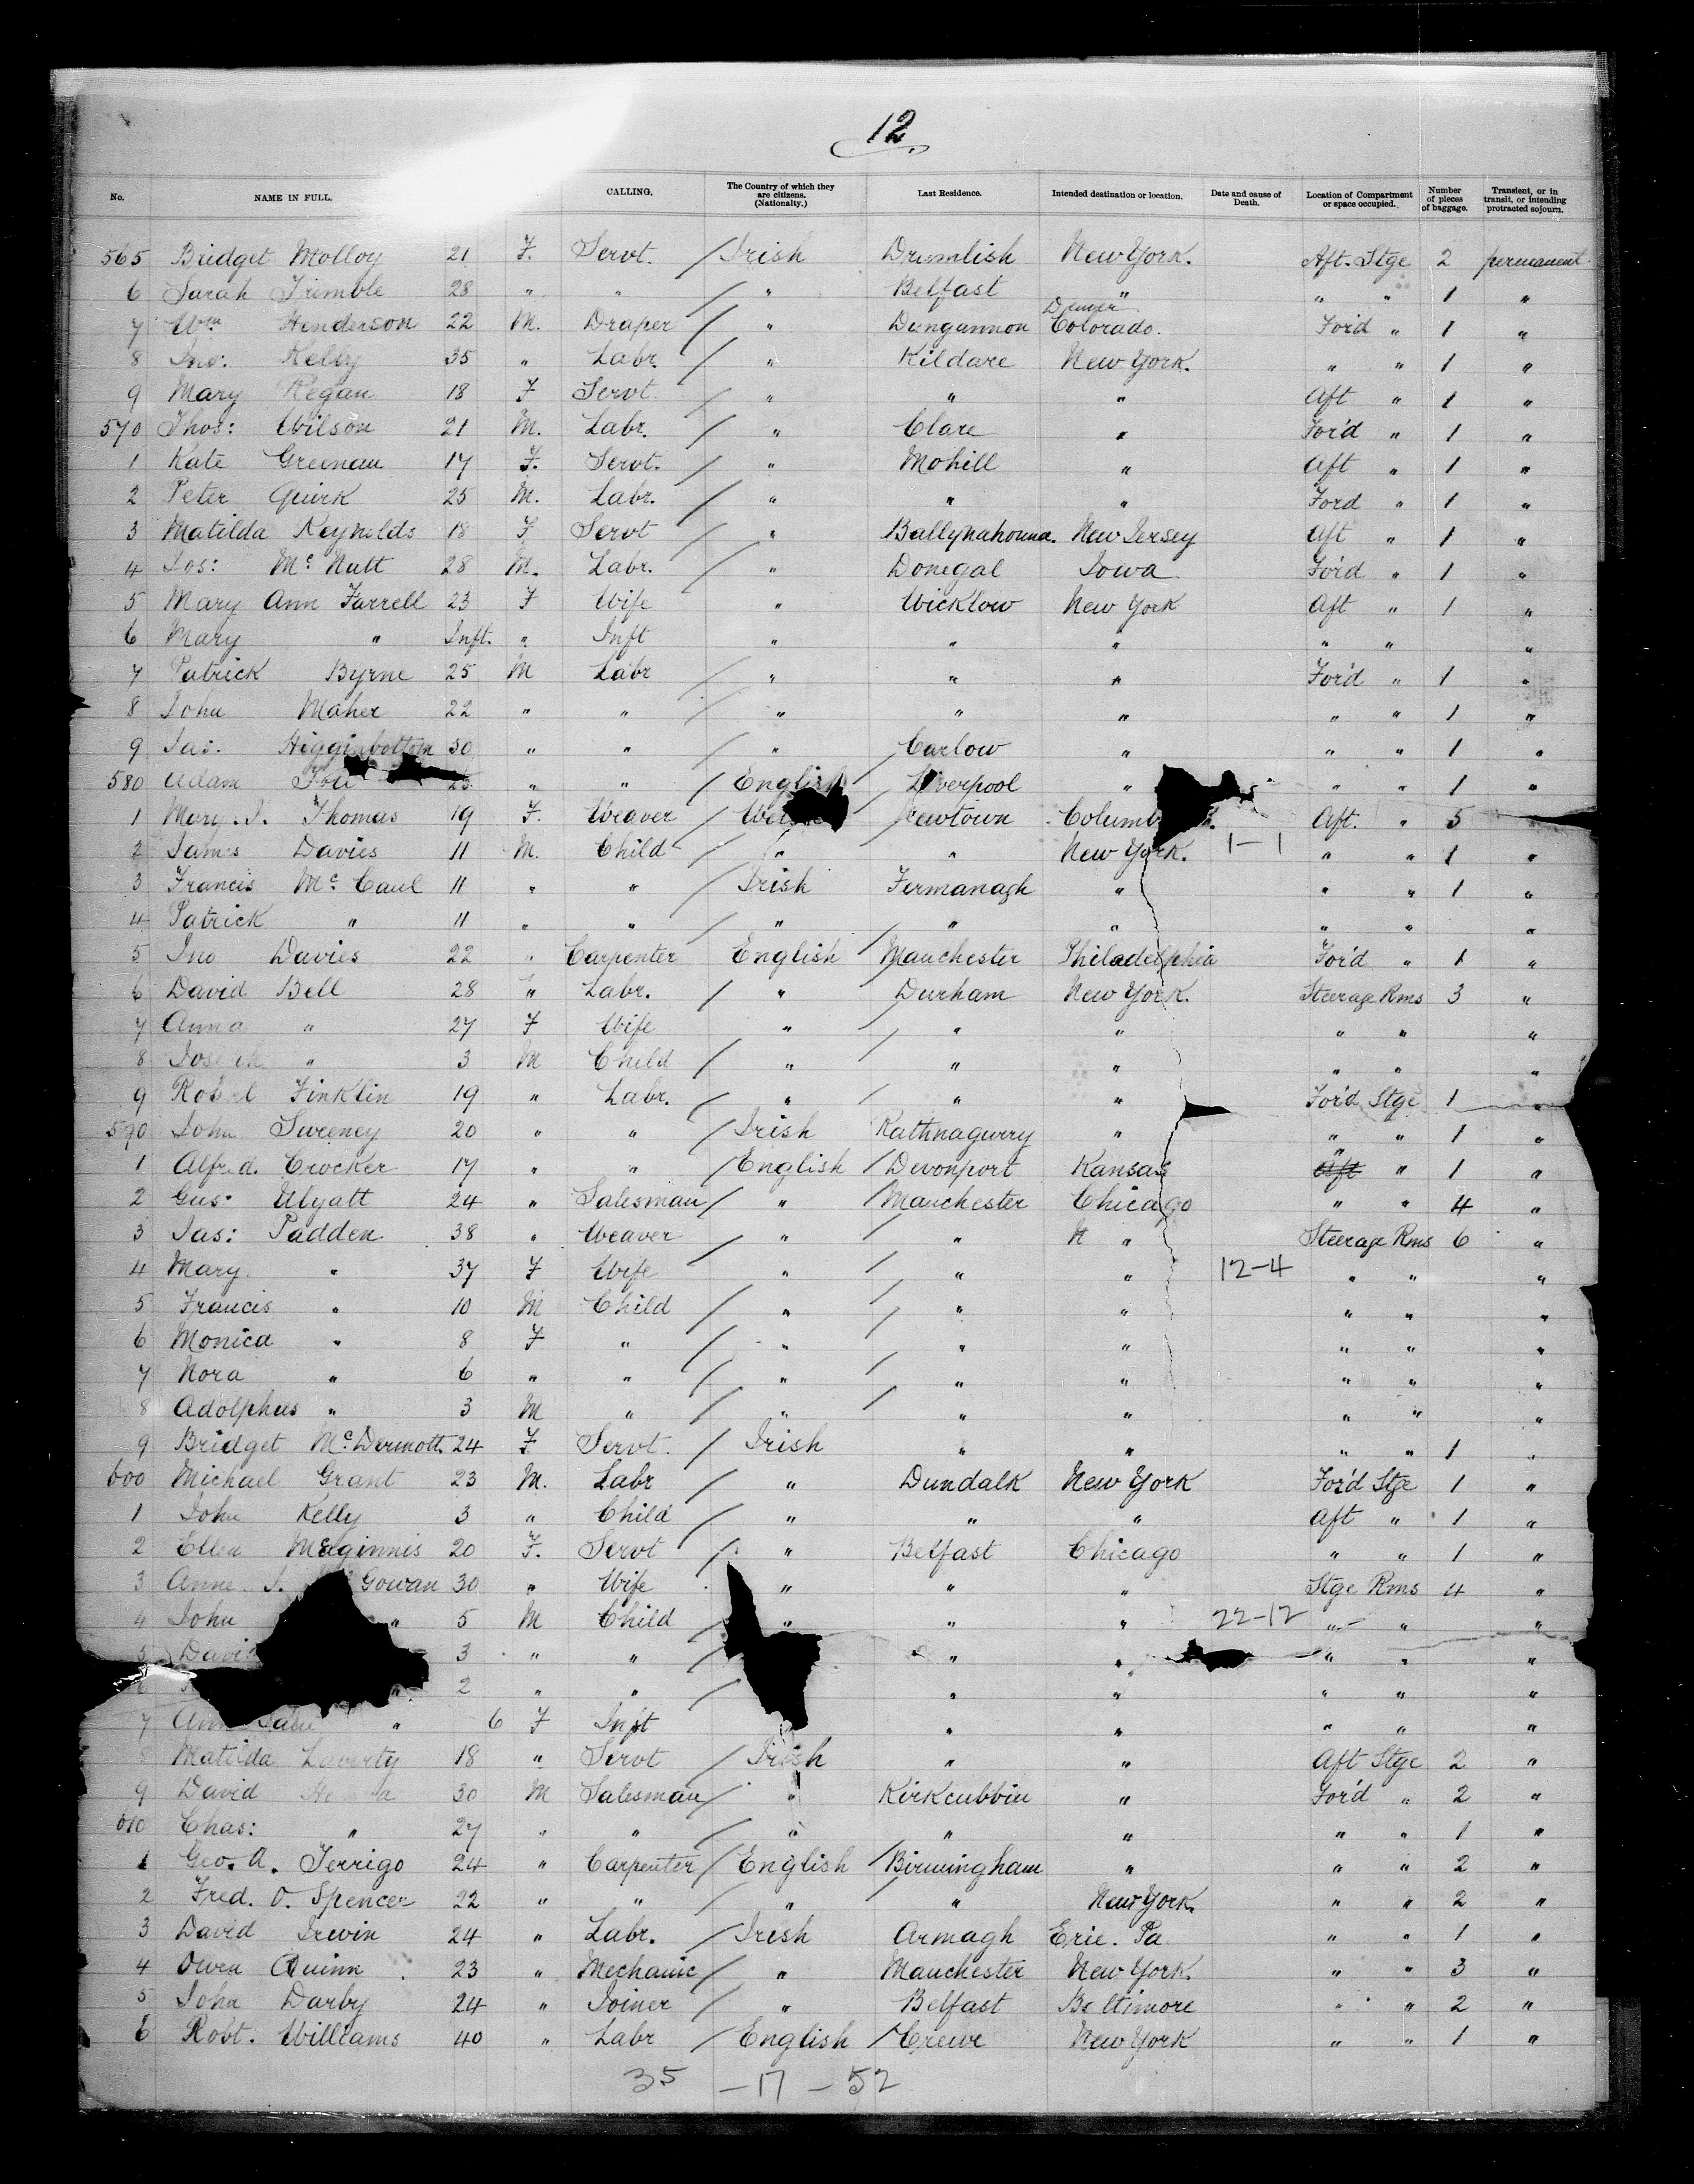 12
No. NAME IN FULL. CALLING. The Country of which they are citizens. (Nationalty.) Last Residence. Intended destination or location. Date and cause of Death. Location of Compartment or space occupied. Number of pieces of baggage. Transient, or in transit, or intending protracted sojourn.
565 Bridget Molloy 21 F. Servt. / Irish Drumlish New York. Aft. Stge 2 permanent
6 Sarah Trimble 28 " " / " Belfast " " " 1 "
7 Wm Henderson 22 M. Draper / " Dungannon Denver Colorado. For'd " 1 "
8 Jno: Kelly 35 " Labr. / " Kildare New York. " " 1 "
9 Mary Regan 18 F Servt. / " " " Aft " 1 "
570 Thos: Wilson 21 M. Labr. / " Clare " For'd " 1 "
1 Kate Greenan 17 F. Servt. / " Mohill " Aft " 1 "
2 Peter Quirk 25 M. Labr. / " " " Ford " 1 "
3 Matilda Reynolds 18 F Servt / " Ballynahouna. New Jersey Aft " 1 "
4 Jos: Mc Nutt 28 M. Labr. / " Donegal Iowa For'd " 1 "
5 Mary Ann Farrell 23 F Wife " Wicklow New York Aft " 1 "
6 Mary " Inft. " Inft " " " " " "
7 Patrick Byrne 25 M Labr / " " " For'd " 1 "
8 John Maher 22 " " / " " " " " 1 "
9 Jas. Higginbottom 30 " " / " Carlow " " " 1 "
580 Adam " " / English / Liverpool " " " 1 "
1 Mary. J. Thomas 19 F. Weaver / / Newtown Columb Aft. " 5
2 James Davies 11 M. Child / " " New York. 1-1 " " 1 "
3 Francis Mc Caul 11 " " / Irish Fermanagh " " " 1 "
4 Patrick " 11 " " / " " " " " "
5 Jno Davies 22 " Carpenter English / Manchester Philadelphia For'd " 1 "
6 David Bell 28 " Labr. / " Durham New York. Steerage Rms 3 "
7 Anna " 27 F Wife " / " " " " "
8 Joseph " 3 M Child / " / " " " " "
9 Robert Finklin 19 " Labr. / " / " " For'd Stge 1 "
590 John Sweeney 20 " " / Irish " " " 1 "
1 Alfred. Crocker 17 " " / English / Devonport Kansas Aft " 1 "
2 Gus: Wyatt 24 " Salesman / " / Manchester Chicago " " 4 "
3 Jas: Padden 38 " Weaver / " / " N " Steerage Rms 6 "
4 Mary. " 37 F Wife / " / " " 12-4 " " "
5 Francis " 10 M Child / " / " " " " "
6 Monica " 8 F " / " " " " " "
7 Nora " 6 " " / " / " " " " "
8 Adolphus " 3 M " / " / " " " " "
9 Bridget McDermott. 24 F Servt. / Irish " " " " 1 "
600 Michael Grant 23 M. Labr / " Dundalk New York For'd Stge 1 "
1 John Kelly 3 " Child / " " " Aft " 1 "
2 Ellen McGinnis 20 F. Servt / " Belfast Chicago " " 1 "
3 Anne J. Gowan 30 " Wife " " " Stge Rms 4 "
4 John " 5 M Child / " " " 22-12 " " "
5 David 3 " " / " " " " "
" 2 " " / " " " " "
7 " 6 F Inft " " " " "
8 Matilda Laverty 18 " Servt / Irish " " Aft Stge 2 "
9 David 30 M Salesman / " Kirkcubbin " For'd " 2 "
610 Chas: " 27 " " / " " " " " 1 "
1 Geo. A. Terrigo 24 " Carpenter / English / Birmingham " " " 2 "
2 Fred. O. Spencer 22 " " / " / " New York. " " 2 "
3 David Irwin 24 " Labr. / Irish Armagh Erie. Pa " " 1 "
4 Owen Quinn 23 " Mechanic / " Manchester New York. " " 3 "
5 John Darby 24 " Joiner / " Belfast Baltimore " " 2 "
6 Robt. Williams 40 " Labr / English / Crewe New York " " 1 "
35 - 17 - 52